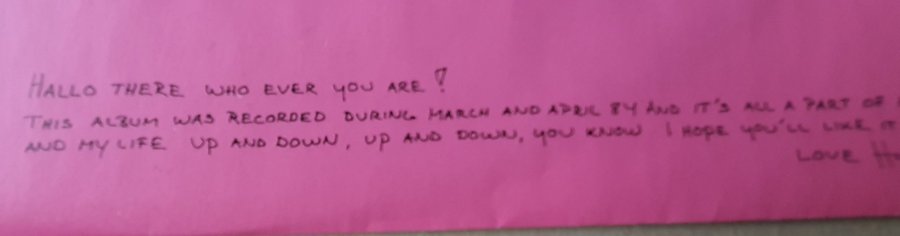 HALLO THERE WHO EVER YOU ARE!
THIS ALBUM WAS RECORDED DURING MARCH AND APRIL 84 AND IT'S ALL A PART OF
AND MY LIFE UP AND DOWN, UP AND DOWN, YOU KNOW I HOPE YOU'LL LIKE IT
LOVE